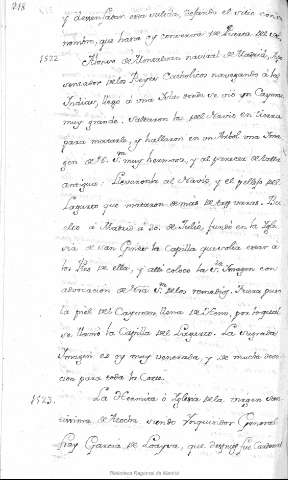 218
y desempeñar esta valida, dejando el sitio con su
nombre, que hasta oy conserva de Puerta del Sol.
1522 Alonso de Montalvan natural de Madrid, Apo-
sentador de los Reyes Catholicos navegando á las
Indias, llegó á una Isla donde se vió un Cayman
muy grande: Salieron los del Navio en tierra
para matarlo, y hallaron en un Arbol una Ima-
gen de N. Sra. muy hermosa, y al parecer de talla
antigua: Llevaronla al Navio, y el pellejo del
Lagarto que mataron de mas de varas. Bol-
vió á Madrid á 30. de Julio, fundó en la Igle-
sia de San Gines la Capilla que solia estar á
los Pies de ella, y alli colocó la Sta. Imagen con
advocacion de Nra. Sra. de los remedios. Puesta pues
la piel del Cayman llena de Heno, por lo qual
se llamó la Capilla del Lagarto. La sagrada
Imagen es oy muy venerada, y de mucha devo-
cion para toda la Corte.
1523. La Hermita ó Iglesia de la Virgen san-
tisima de Atocha siendo Inquisidor General
fray Garcia de Loaysa, que despues fue Cardenal
Biblioteca Regional de Madrid